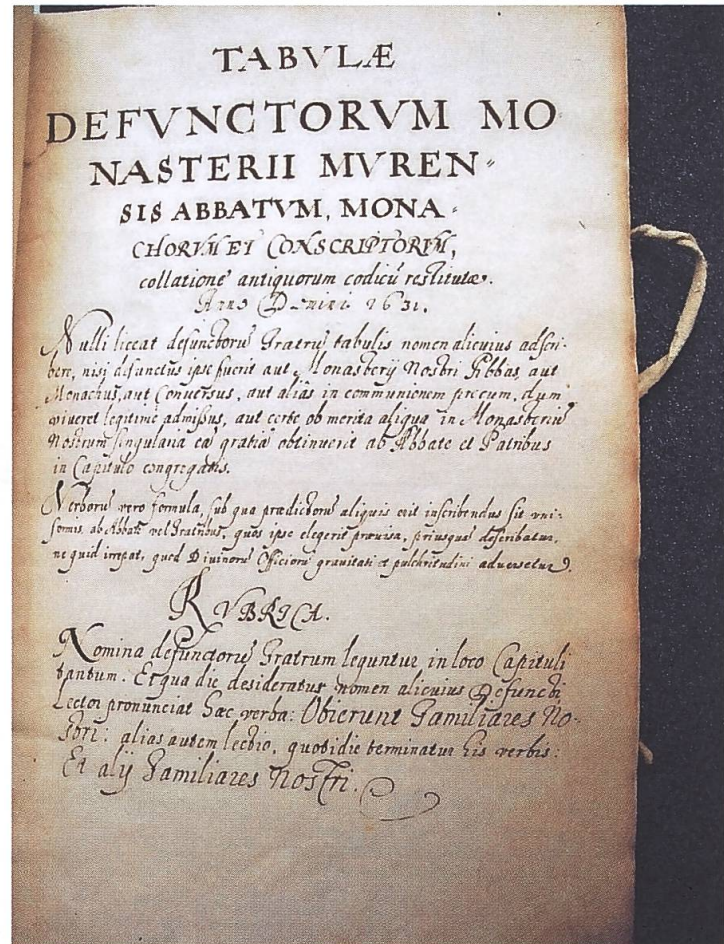 TABVLÆ
DEFVNCTORVM MO
NASTERII MVREN=
SIS ABBATVM, MONA-
CHORVM ET CONSCRIPTORVM,
collatione antiquorum codicū restitutæ.
Anno Domini 1631.
Nulli liceat defunctorū Fratrū tabulis nomen alicuius adscri-
bere, nisi defunctus ipse fuerit aut Monasterij Nostri Abbas, aut
Monachus, aut Conversus, aut aliàs in communionem precum, dum
viveret legitimè admissus, aut certe ob merita aliqua in Monasteriū
Nostrum singularia eā gratiā obtinuerit ab Abbate et Patribus
in Capitulo congregatis.
Verborū vero formula, sub qua prædictorū aliquis erit inscribendus sit vni-
formis, ab Abbate vel Fratribus, quos ipse elegerit prævisa, priusquā describatur,
ne quid irrepat, quod Divinorū Officiorū gravitati et pulchritudini adversetur.
RVBRICA.
Nomina defunctorū Fratrum leguntur in loco Capituli
tantum. Et qua die desideratur nomen alicuius Defuncti
Lector pronunciat hæc verba: Obierunt Familiares No-
stri: alias autem lectio, quotidie terminatur his verbis:
Et alij Familiares Nostri.